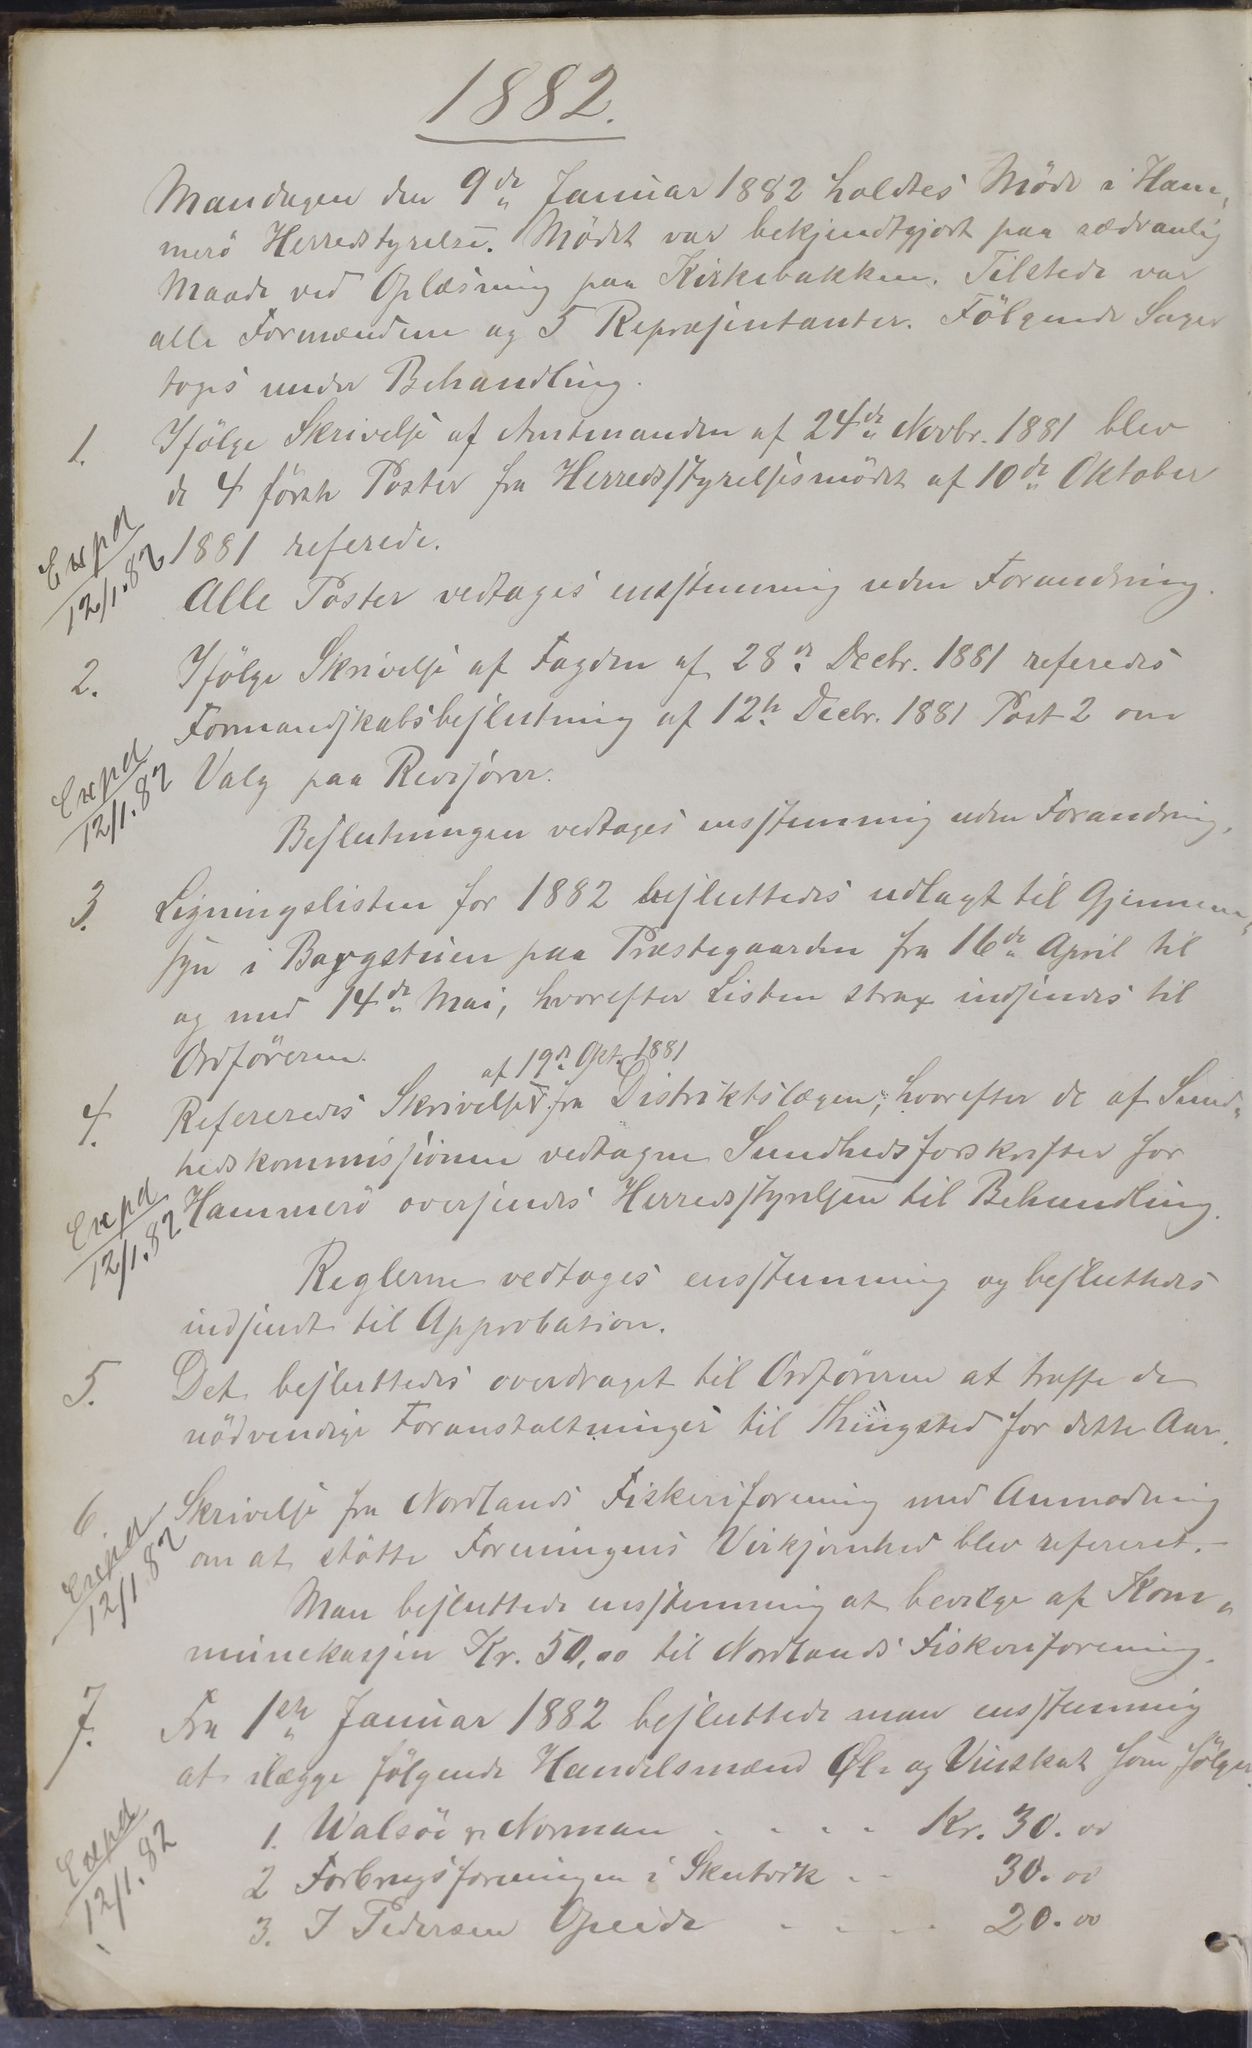 1882.
Mandagen den 9de Januar 1882 holdtes Möde i Ham-
merö Herredstyrelse. Mödet var bekjendtgjort paa sædvanlig
Maade ved Oplæsning paa Kirkebakken. Tilstede var
alle Formændene og 5 Repræsentanter. Fölgende Sager
toges under Behandling.
1. Ifölge Skrivelse af Amtmanden af 24de Novbr. 1881 blev
de 4 förste Poster fra Herredsstyrelsesmödet af 10de Oktober
1881 referede.
Expd
12/1.82
Alle Poster vedtages enstemmig uden Forandring.
2. Ifölge Skrivelse af Fogden af 28de Decbr. 1881 referedes
Formandskabsbeslutning af 12te Decbr. 1881 Post 2 om
Valg paa Revisorer.
Expd
12/1.82
Beslutningen vedtages enstemmig uden Forandring.
3. Ligningslisten for 1882 besluttedes udlagt til Gjennem-
syn i Borgstuen paa Præstegaarden fra 16de April til
og med 14de Mai, hvorefter Listen strax indsendes til
Ordföreren.
af 19de Okt. 1881
4. Refereredes Skrivelse fra Distriktslægen, hvorefter de af Sund-
hedskommissionen vedtagne Sundhedsforskrifter for
Hammerö oversendes Herredsstyrelsen til Behandling.
Expd
12/1.82
Reglerne vedtoges enstemmig og besluttedes
indsendt til Approbation.
5. Det besluttedes overdraget til Ordföreren at træffe de
nödvendige Foranstaltninger til Thingsted for dette Aar.
6. Skrivelse fra Nordlands Fiskeriforening med Anmodning
om at stötte Foreningens Virksomhed blev refereret.-
Expd
12/1 82
Man besluttede enstemmig at bevilge af Kom-
munekassen Kr. 50,00 til Nordlands Fiskeriforening.
7. Fra 1ste Januar 1882 besluttede man enstemmig
at ilægge fölgende Handelsmænd Øl- og Vinskat som fölger.
Expd
12/1.82
1. Walsöe & Norman . . . . Kr. 30.00
2 Forbrugsforeningen i Skutvik . . 30.00
3. J Pedersen Opeide . . . . 20.00